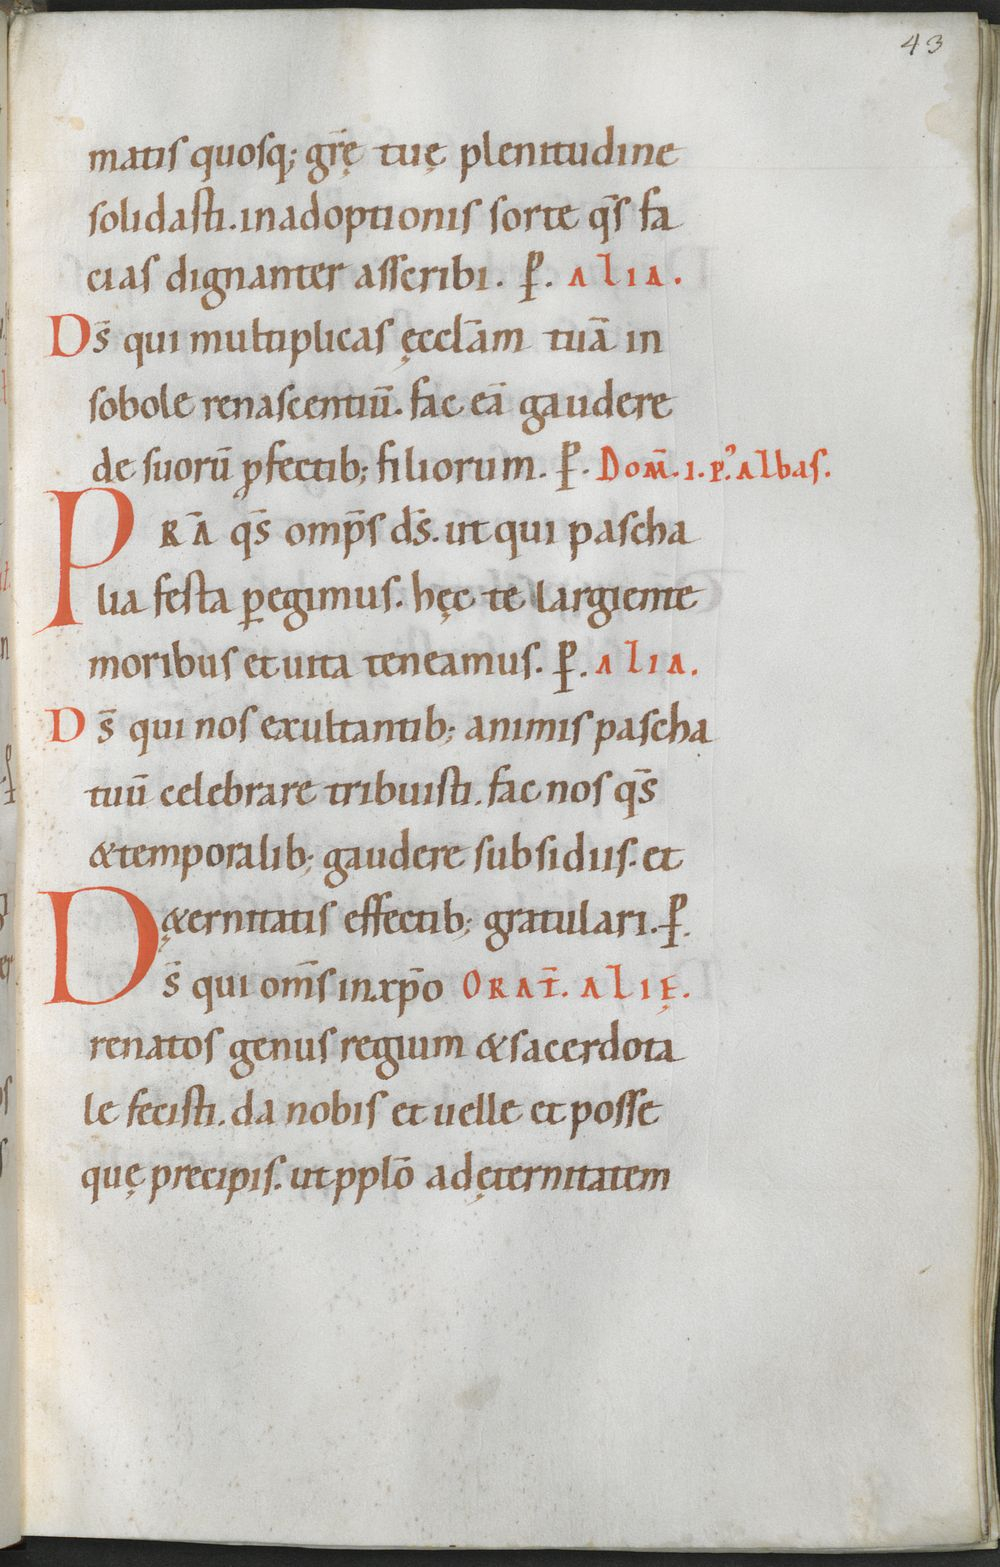 43
matis quosq; gr̄ę tuę plenitudine
solidasti. in adoptionis sorte q̄s fa
cias dignanter asscribi. P̄. ALIA.
Ds̄ qui multiplicas ęccl̄am tuā in
sobole renascentiū. fac eā gaudere
de suorū ꝓfectib; filiorum. P̄. Dom̄. I. P᾿. Albas.
PRA q̄s omp̄s ds̄. ut qui pascha
lia festa ꝑegimus. hęc te largiente
moribus et uita teneamus. P̄. ALIA.
Ds̄ qui nos exultantib; animis pascha
tuū celebrare tribuisti. fac nos q̄s
& temporalib; gaudere subsidiis. et
ę&ernitatis effectib; gratulari. P̄.
Ds̄ qui om̄s in xp̄o ORAT̄. ALIĘ.
renatos genus regium & sacerdota
le fecisti. da nobis et uelle et posse
quę precipis. ut pplō ad ęternitatem